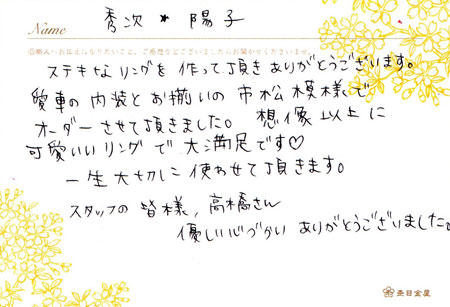 秀次 * 陽子
Name
ステキなリングを作って頂きありがとうございます。
愛車の内装とお揃いの市松模様で
オーダーさせて頂きました。想像以上に
可愛いいリングで大満足です♡
一生大切に使わせて頂きます。
スタッフの皆様,高橋さん
優しい心づかいありがとうございました。
杢目金屋